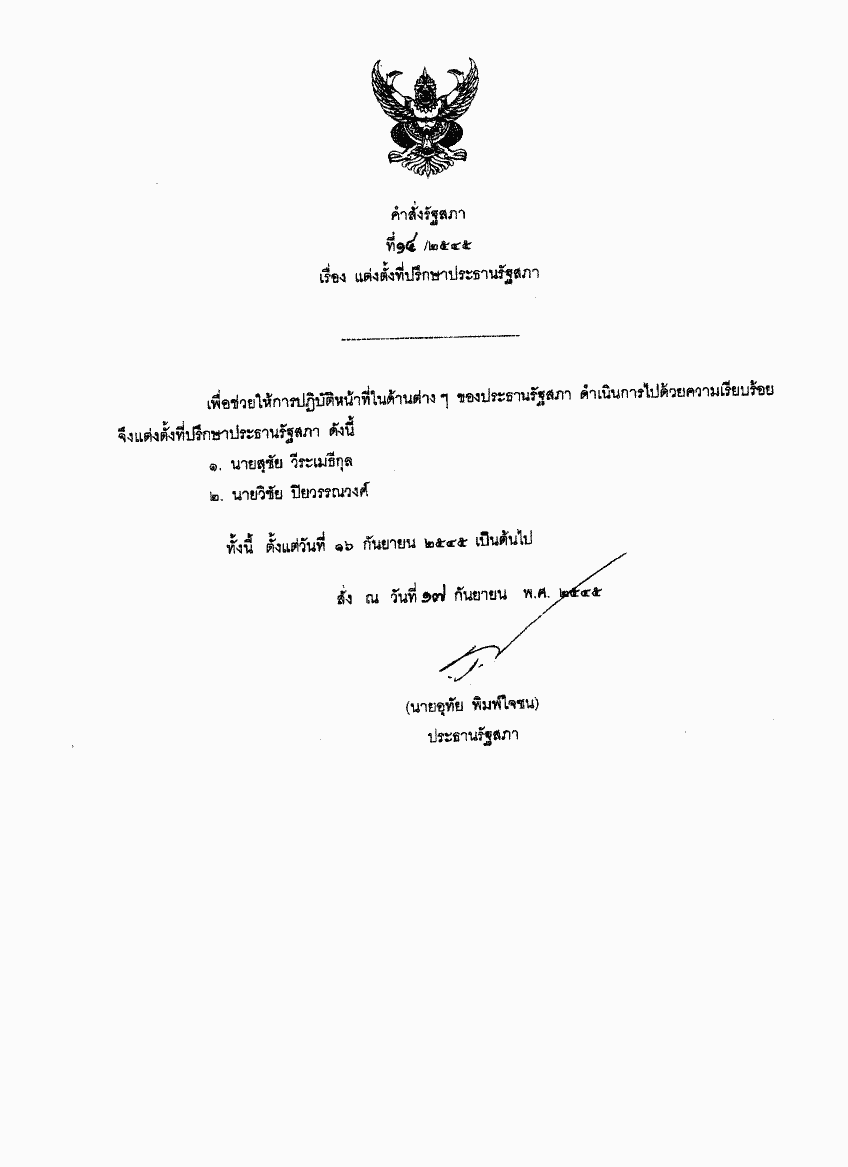 คำสั่งรัฐสภา
ที่๑๔ /๒๕๔๕
เรื่อง แต่งตั้งที่ปรึกษาประธานรัฐสภา
เพื่อช่วยให้การปฏิบัติหน้าที่ในด้านต่าง ๆ ของประธานรัฐสภา ดำเนินการไปด้วยความเรียบร้อย
จึงแต่งตั้งที่ปรึกษาประธานรัฐสภา ดังนี้
๑. นายสุชัย วีระเมธีกุล
๒. นายวิชัย ปิยวรรณวงศ์
ทั้งนี้ ตั้งแต่วันที่ ๑๖ กันยายน ๒๕๔๕ เป็นต้นไป
สั่ง ณ วันที่ ๑๗ กันยายน พ.ศ. ๒๕๔๕
(นายอุทัย พิมพ์ใจชน)
ประธานรัฐสภา